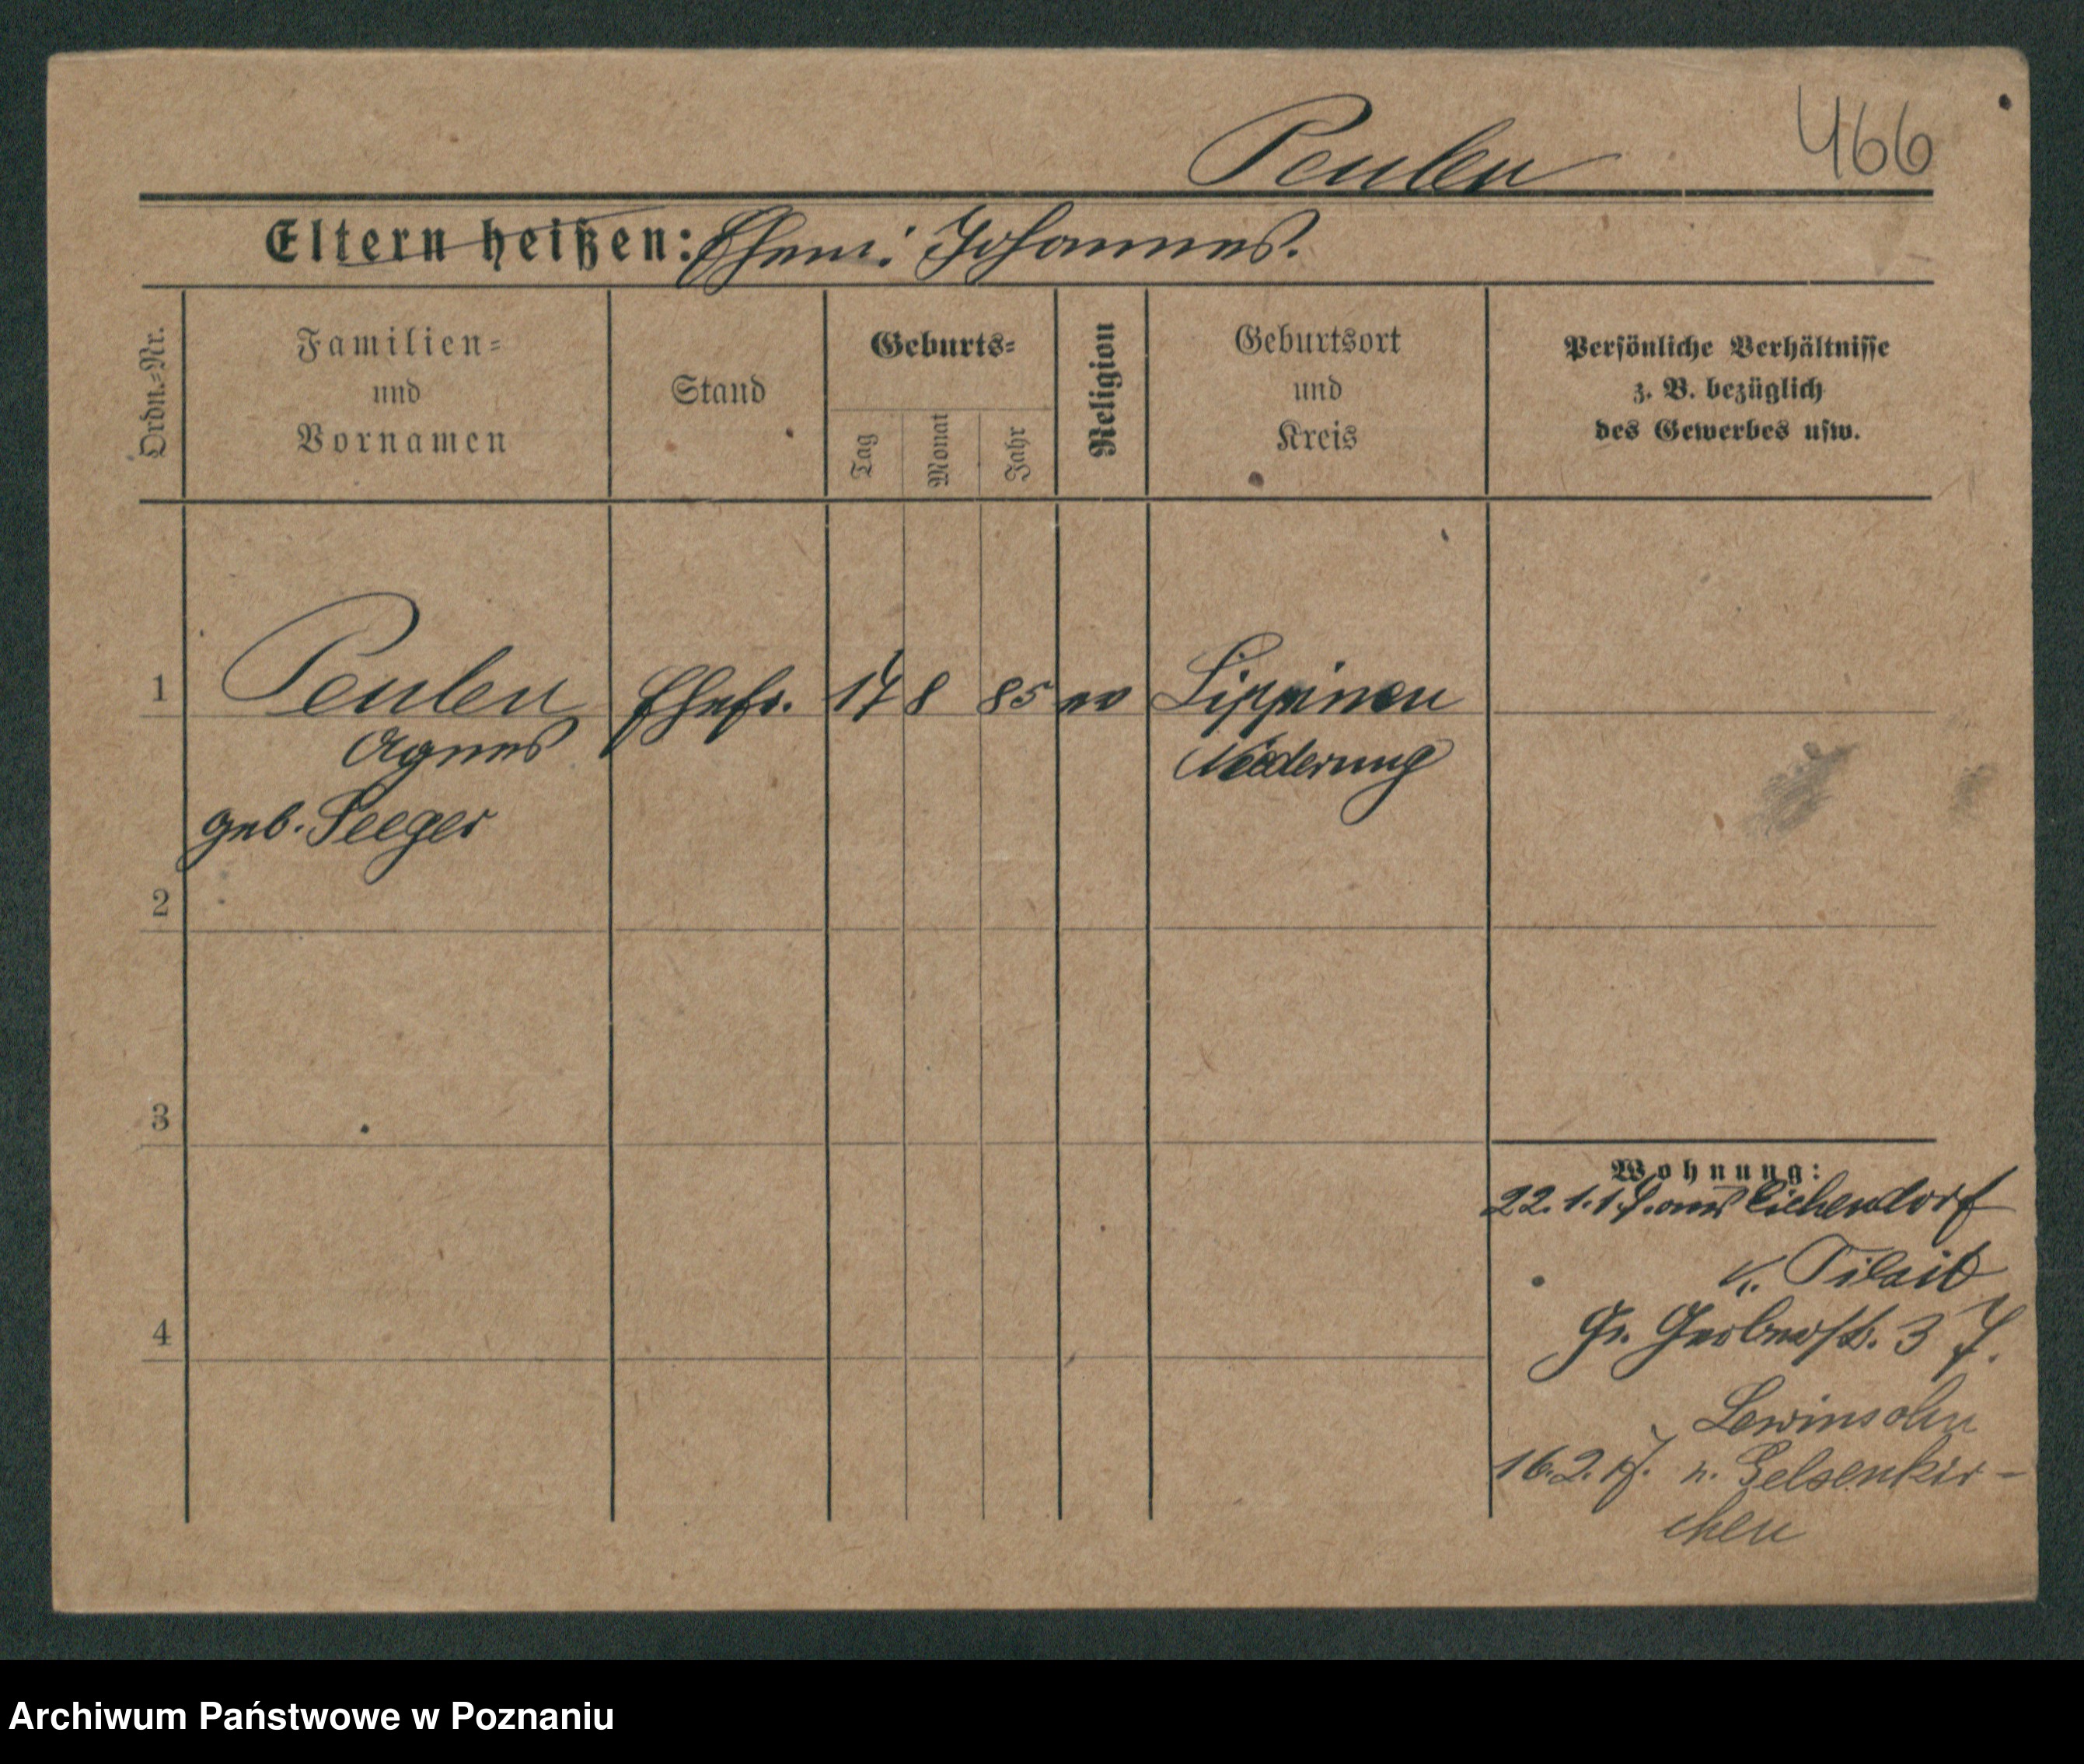 466
Peulen
Eltern heißen: Ehem: Johannes.
Ordn.-Nr.
Familien-
und
Vornamen
Stand
Geburts-
Tag
Monat
Jahr
Religion
Geburtsort
und
Kreis
Persönliche Verhältnisse
z. B. bezüglich
des Gewerbes usw.
1 Peulen Ehefr. 17 8 85 ev Lippinen
Agnes Niederung
geb. Seeger
2
3
4
Wohnung:
22. 1. 17. aus Eichendorf
k. Tilsit
Gr. Gerberstr. 3 I.
Lewinsohn
16. 2. 17. n. Gelsenkir-
chen
Archiwum Państwowe w Poznaniu